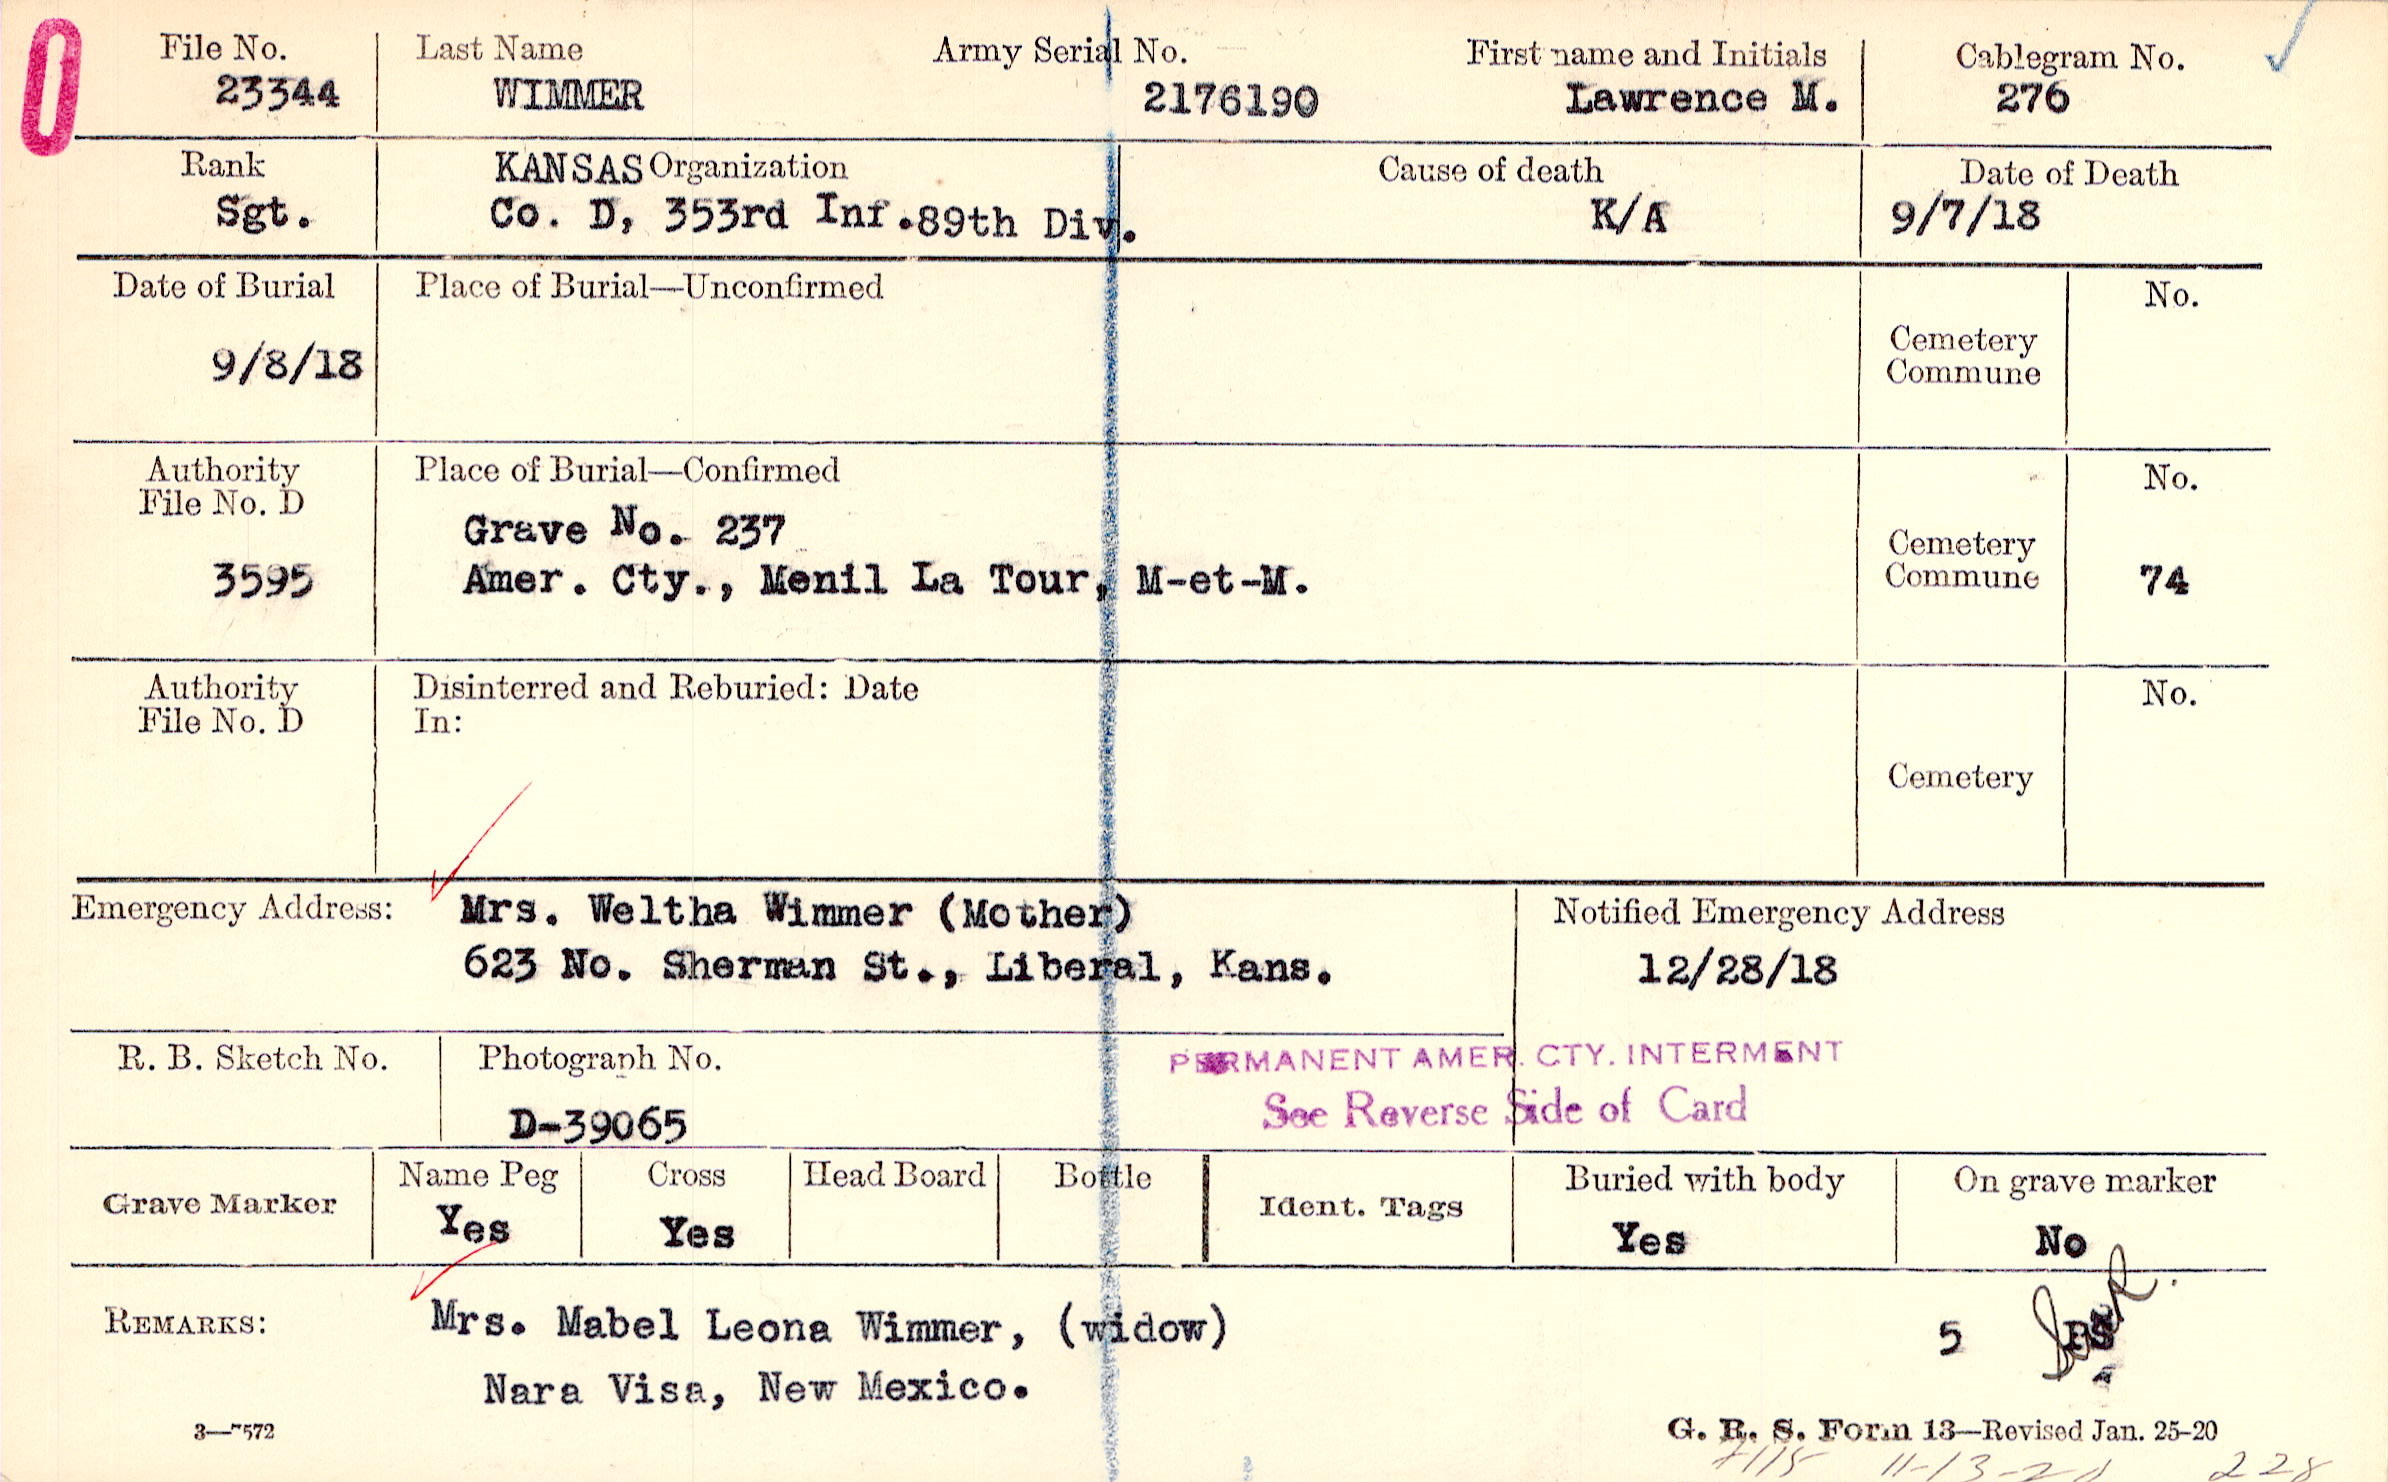 File No. Last Name Army Serial No. First name and Initials Cablegram No.
23344 WIMMER 2176190 Lawrence M. 276
Rank KANSAS Organization Cause of death Date of Death
Sgt. Co. D, 353rd Inf. 89th Div. K/A 9/7/18
Date of Burial Place of Burial—Unconfirmed No.
9/8/18
Cemetery
Commune
Authority Place of Burial—Confirmed No.
File No. D
Grave No. 237
3595 Amer. Cty., Menil La Tour, M-et-M.
Cemetery
Commune 74
Authority Disinterred and Reburied: Date No.
File No. D In:
Cemetery
Emergency Address: Mrs. Weltha Wimmer (Mother) Notified Emergency Address
623 No. Sherman St., Liberal, Kans. 12/28/18
R. B. Sketch No. Photograph No. PERMANENT AMER. CTY. INTERMENT
D-39065 See Reverse Side of Card
Grave Marker Name Peg Cross Head Board Bottle Ident. Tags Buried with body On grave marker
Yes Yes Yes No
REMARKS: Mrs. Mabel Leona Wimmer, (widow) 5
Nara Visa, New Mexico.
3—7572 G. R. S. Form 13—Revised Jan. 25-20
228